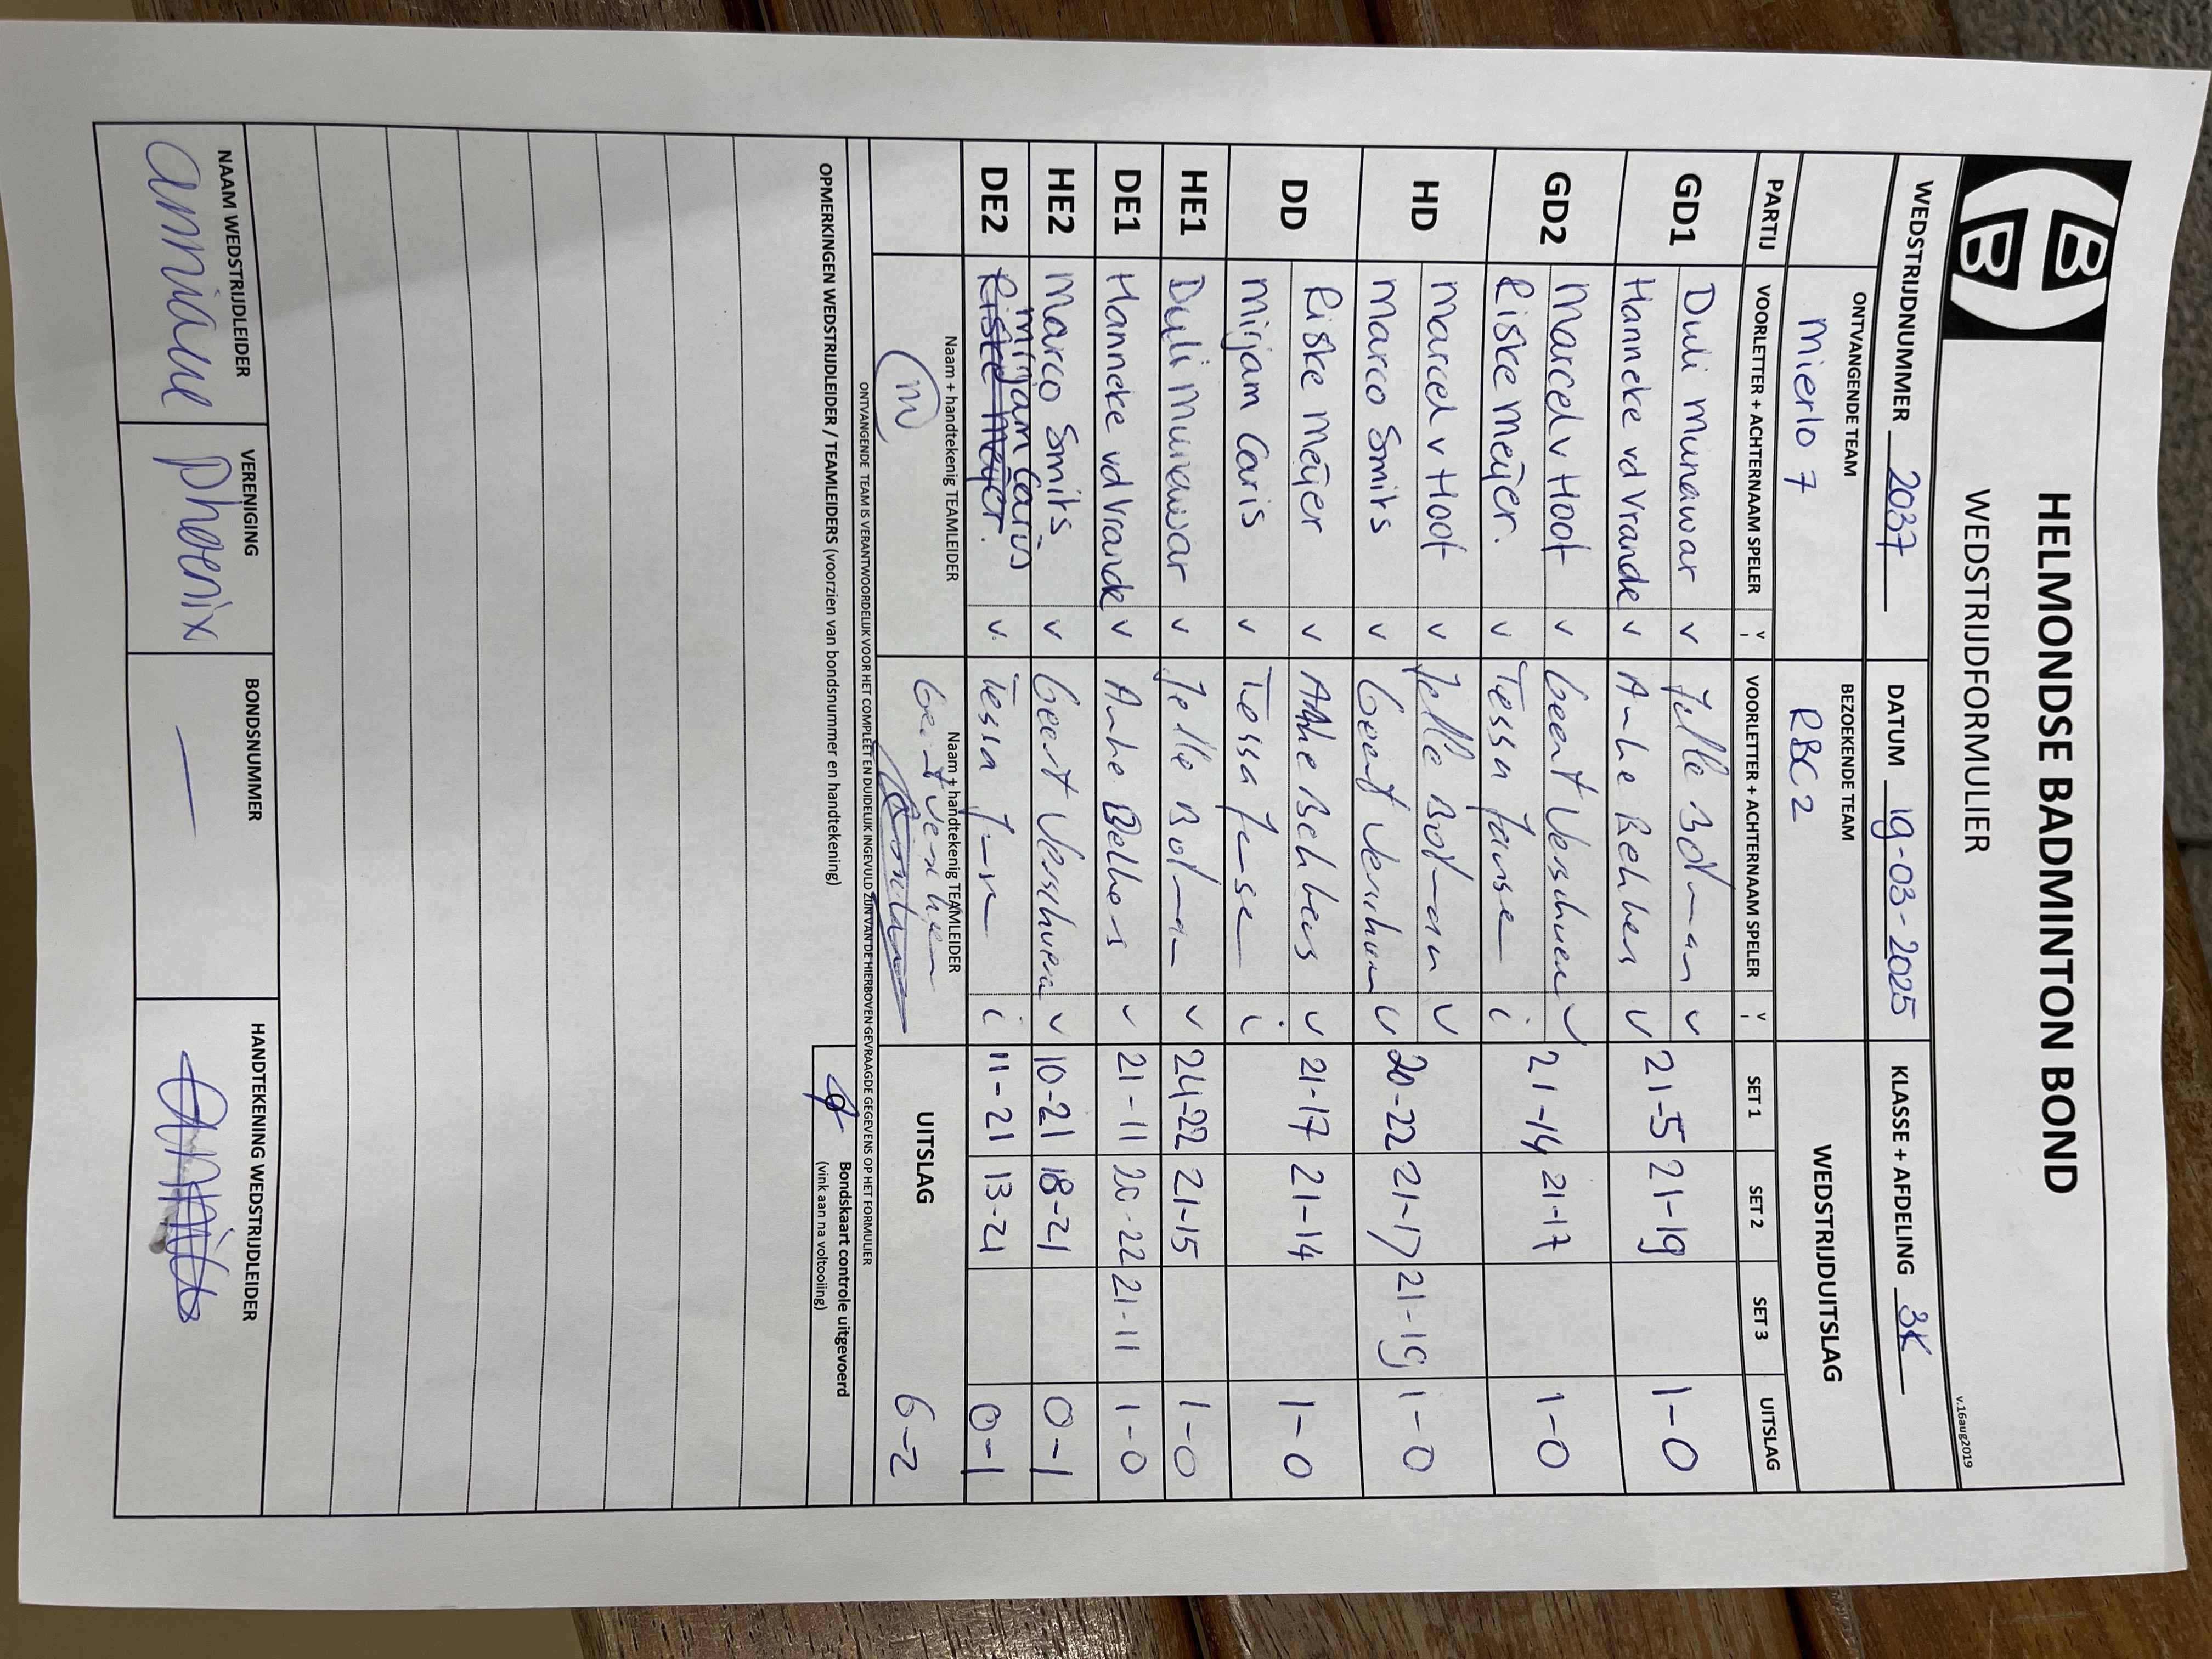 HELMONDSE BADMINTON BOND
WEDSTRIJDFORMULIER
v.16aug2019
WEDSTRIJDNUMMER 2037 DATUM 19-03-2025 KLASSE + AFDELING 3K
ONTVANGENDE TEAM BEZOEKENDE TEAM WEDSTRIJDUITSLAG
Mierlo 7 RBC 2
PARTIJ VOORLETTER + ACHTERNAAM SPELER v i VOORLETTER + ACHTERNAAM SPELER v i SET 1 SET 2 SET 3 UITSLAG
GD1 Duli Munawar v Jelle Botman v 21-5 21-19 1-0
Hanneke vd Vrande v Anke Bekkers v
GD2 Marcel v Hoof v Geert Verschuren v 21-14 21-17 1-0
Riske Meijer. v Tessa Janse i
HD Marcel v Hoof v Jelle Botman v 20-22 21-17 21-19 1-0
Marco Smits v Geert Verschuren v
DD Riske Meijer v Anke Bekkers v 21-17 21-14 1-0
Mirjam Caris v Tessa Janse i
HE1 Duli Munawar v Jelle Botman v 24-22 21-15 1-0
DE1 Hanneke vd Vrande v Anke Bekkers v 21-11 20-22 21-11 1-0
HE2 Marco Smits v Geert Verschuren v 10-21 18-21 0-1
Mirjam Caris
DE2 Riske Meijer. v Tessa Janse i 11-21 13-21 0-1
Naam + handtekenig TEAMLEIDER Naam + handtekenig TEAMLEIDER UITSLAG 6-2
m Geert Verschuren
ONTVANGENDE TEAM IS VERANTWOORDELIJK VOOR HET COMPLEET EN DUIDELIJK INGEVULD ZIJN VAN DE HIERBOVEN GEVRAAGDE GEGEVENS OP HET FORMULIER
OPMERKINGEN WEDSTRIJDLEIDER / TEAMLEIDERS (voorzien van bondsnummer en handtekening) Bondskaart controle uitgevoerd
(vink aan na voltooiing)
NAAM WEDSTRIJDLEIDER VERENIGING BONDSNUMMER HANDTEKENING WEDSTRIJDLEIDER
Phoenix —